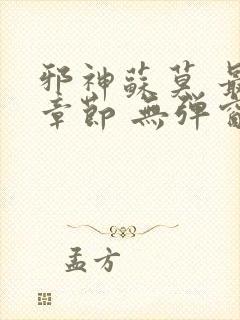 邪神蘇莫 最
章節 無彈窗
孟方